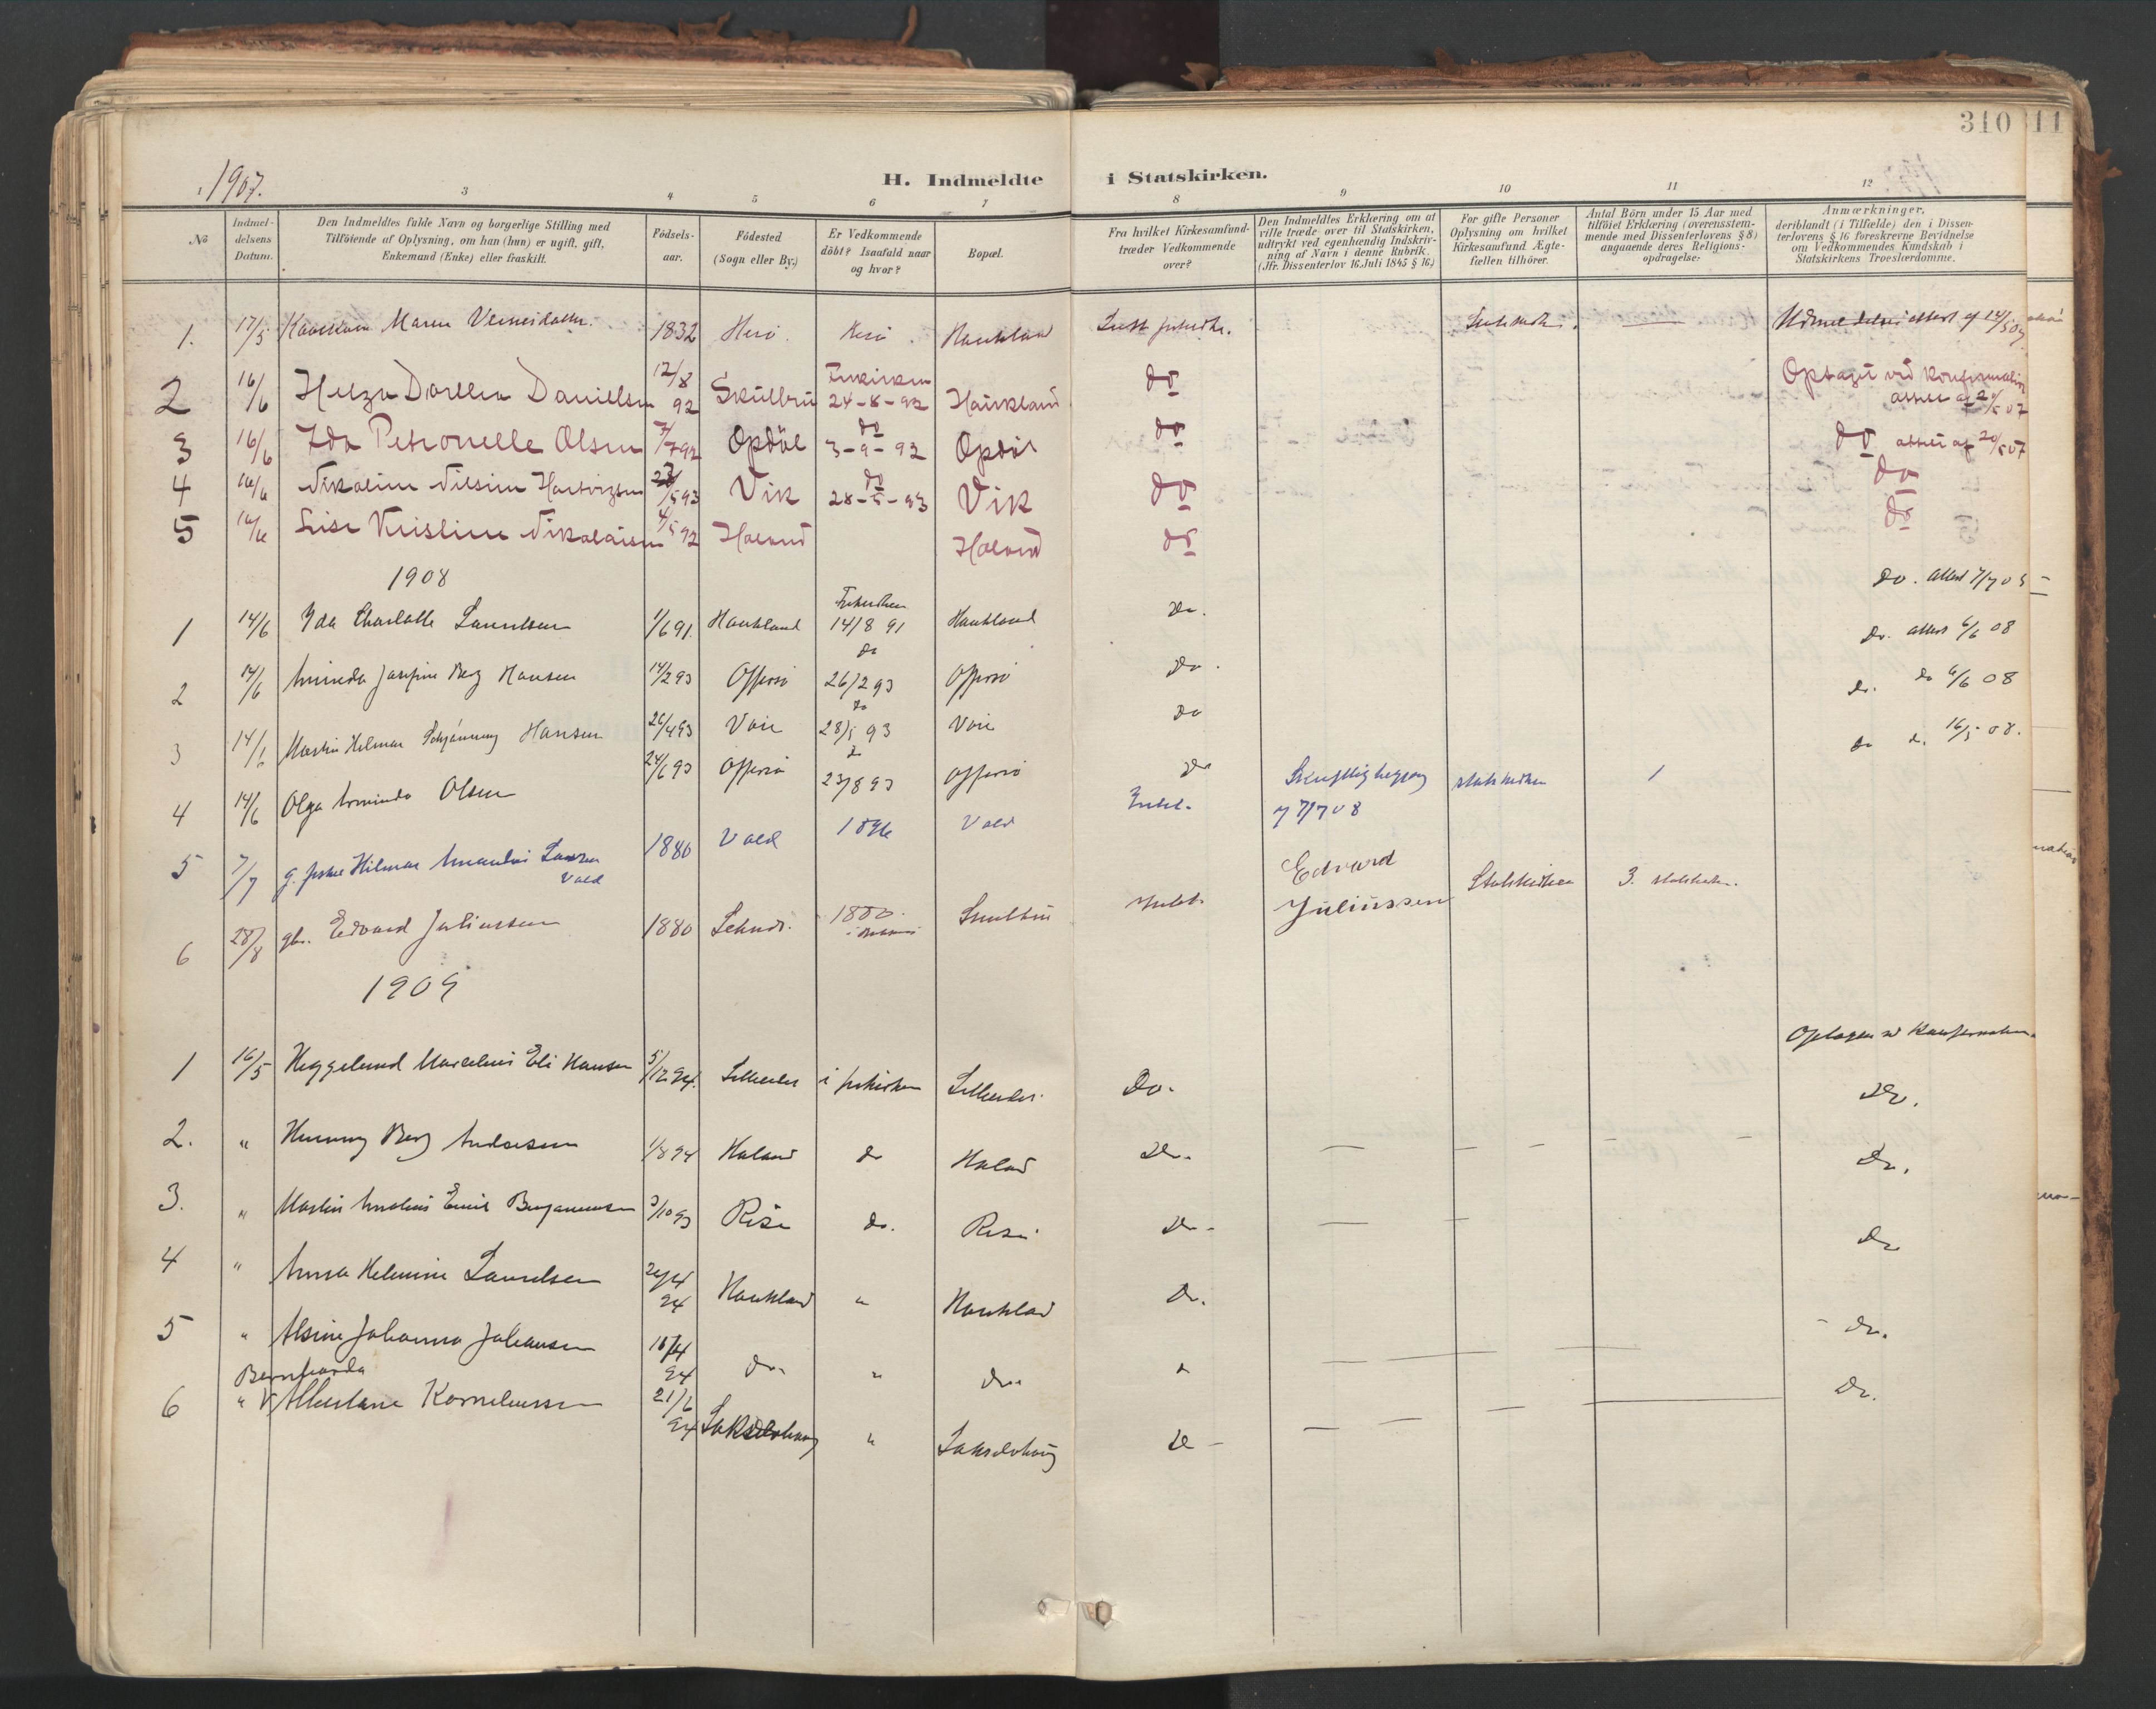 310 11
1907.
H. Indmeldte i Statskirken.
1 3 4 5 6 7 8 9 10 11 12
No
Indmel-
delsens
Datum.
Den Indmeldtes fulde Navn og borgerlige Stilling med
Tilföiende af Oplysning, om han (hun) er ugift, gift,
Enkemand (Enke) eller fraskilt.
Födsels-
aar.
Födested
(Sogn eller By.)
Er Vedkommende
döbt? Isaafald naar
og hvor?
Bopæl.
Fra hvilket Kirkesamfund
træder Vedkommende
over?
Den Indmeldtes Erklæring om at
ville træde over til Statskirken,
udtrykt ved egenhændig Indskriv-
ning af Navn i denne Rubrik.
(Jfr. Dissenterlov 16. Juli 1845 § 16.)
For gifte Personer
Oplysning om hvilket
Kirkesamfund Ægte-
fællen tilhörer.
Antal Börn under 15 Aar med
tilföiet Erklæring (overensstem-
mende med Dissenterlovens § 8)
angaaende deres Religions-
opdragelse:
Anmærkninger,
deriblandt (i Tilfælde) den i Dissen-
terlovens § 16 foreskrevne Bevidnelse
om Vedkommendes Kundskab i
Statskirkens Troeslærdomme.
1. 17/5 Maren 1832 Herö. Herö. Haukland Luth frikirke. attest af 14/5 07
2 16/6 Helga Dorthea Danielsen 12/8 92 Skülbrü Frikirken 24-8-92 Haukland do Optaget ved Konfirmation attest af 20/5 07
3 16/6 Ida Petronelle Olsen 7/7 92 Opdöl do 3-9-92 Opdöl do do attest af 20/5 07
4 16/6 Nikoline Nilsine Hartvigsen 23/5 93 Vik do 28-5-93 Vik do do
5 16/6 Lise Kristine Nikolaisen 4/5 92 Halsund Halsund do do
1908
1 14/6 Ida Charlotte Lauritsen 1/6 91. Haukland Frikirken 14/8 91 Haukland Do. Do. attest 7/7 08
2 14/6 Arminda Josefine Berg Hansen 14/2 93 Offersö do 26/2 93 Offersö Do. Do. attest 6/6 08
3 14/6 Martin Hilmar Schjänning Hansen 26/4 93 Voie do 28/5 93 Voie Do do. do 6/6 08
4 14/6 Olga Arminda Olsen 24/6 93 Offersö do 23/8 93 Offersö Do do d. 16/5 08.
5 7/7 g. fisker Hilmar Amandus Larsen Vold 1880 Vold Vold Frikir. Skriftlig begjæring 7/7 08 statskirken 1
6 28/8 gbr. Edvard Juliussen 1880 Leknes. 1880. Edvard Juliussen Statskirken 3. statskirken.
1909
1 16/5 Heggelund Marcelius Eli Hansen 5/12 94. i frikirken Do. Optagen ved Konfirmation.
2. " Henning Berg Andresen 1/8 94 Haland do Haland Do. — — — — — Do.
3. " Martin Anelius Emil Benjaminsen 3/10 93 Risö do. Risö Do. — — Do.
4 " Anna Helmine Lauritsen 24/4 94 Haukland " Haukland Do. Do
5 " Alsine Johanna Johansen 16/4 94 Do. " Do. " — — — Do.
6 " Bernharda Albertane Korneliussen 21/6 94 Lakselvhaug " Lakselvhaug Do — — — — — Do.